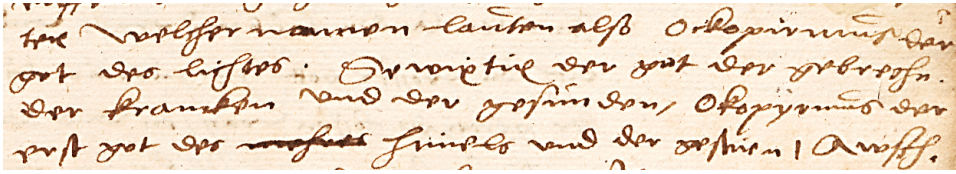 ter welcher namen lauten also Ockopirnus der
got des lichtes. Swixtix der got der gebrechn.
der krancken und der gesunden, Okopyrnus der
erst got des himels und der gestirn / Awssch.